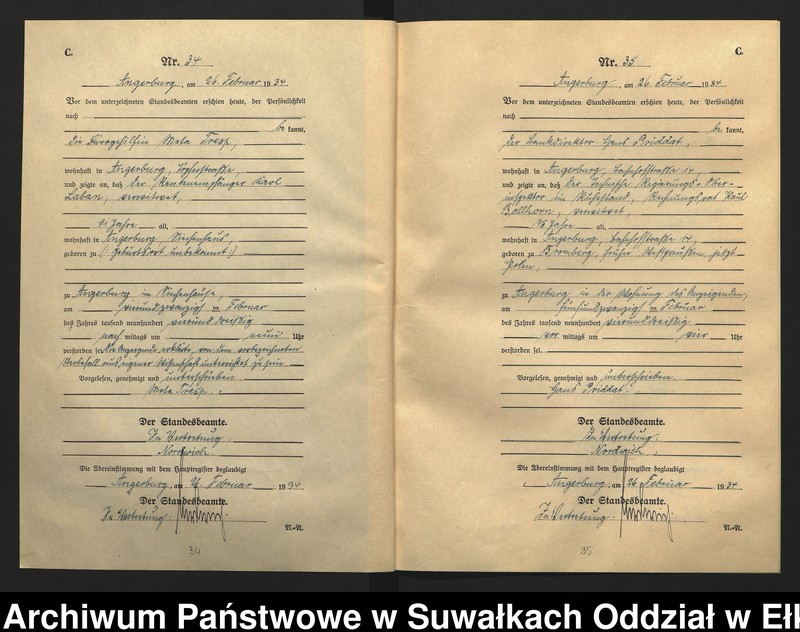 C.
Nr. 34
Angerburg, am 26. Februar 1934
Vor dem unterzeichneten Standesbeamten erschien heute, der Persönlichkeit
nach
be kannt,
die Bürogehilfin Meta Tresp,
wohnhaft in Angerburg,
und zeigte an, daß der Rentenempfänger Karl
Laban, verwitwet,
91 Jahre alt,
wohnhaft in Angerburg, Siechenhaus,
geboren zu (: Geburtsort unbekannt :)
zu Angerburg im Siechenhause,
am vierundzwanzigsten Februar
des Jahres tausend neunhundert vierunddreißig
nach mittags um neun Uhr
verstorben sei. Die Anzeigende erklärte, von dem vorbezeichneten
Sterbefall aus eigener Wissenschaft unterrichtet zu sein.
Vorgelesen, genehmigt und unterschrieben.
Meta Tresp.
Der Standesbeamte.
In Vertretung:
Die Übereinstimmung mit dem Hauptregister beglaubigt
Angerburg, am 26. Februar 1934.
Der Standesbeamte.
In Vertretung:
N.-N.
34
C.
Nr. 35
Angerburg, am 26. Februar 1934
Vor dem unterzeichneten Standesbeamten erschien heute, der Persönlichkeit
nach
be kannt,
der Bankdirektor Hans Priddat,
wohnhaft in Angerburg, Bahnhofstraße 14,
und zeigte an, daß der technische Regierungs-Ober-
inspektor im Ruhestand, Rechnungsrat Paul
Ballhorn, verwitwet,
75 Jahre alt,
wohnhaft in Angerburg, Bahnhofstraße 14,
geboren zu Bromberg, früher Westpreußen, jetzt
Polen,
zu Angerburg in der Wohnung des Anzeigenden,
am fünfundzwanzigsten Februar
des Jahres tausend neunhundert vierunddreißig
vor mittags um vier Uhr
verstorben sei.
Vorgelesen, genehmigt und unterschrieben.
Hans Priddat.
Der Standesbeamte.
In Vertretung:
Die Übereinstimmung mit dem Hauptregister beglaubigt
Angerburg, am 26. Februar 1934
Der Standesbeamte.
In Vertretung:
N.-N.
35
Archiwum Państwowe w Suwałkach Oddział w Ełk